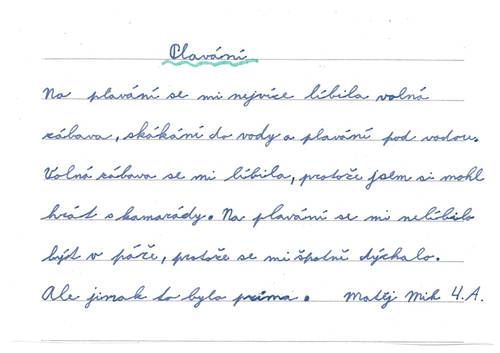 Plavání
Na plavání se mi nejvíce líbila volná
zábava, skákání do vody a plavání pod vodou.
Volná zábava se mi líbila, protože jsem si mohl
hrát s kamarády. Na plavání se mi nelíbilo
být v páře, protože se mi špatně dýchalo.
Ale jinak to bylo prima. Matěj Mik 4.A.